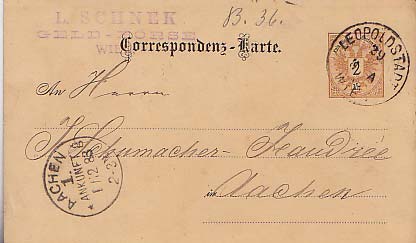 L. SCHNEK
GELD-BÖRSE
WIEN
B. 36.
Correspondenz-Karte.
LEOPOLDSTADT
29
2
A
WIEN
An Herrn
J. Schumacher-
in Aachen
AACHEN
1.
ANKUNFT
1/12 88
2-3